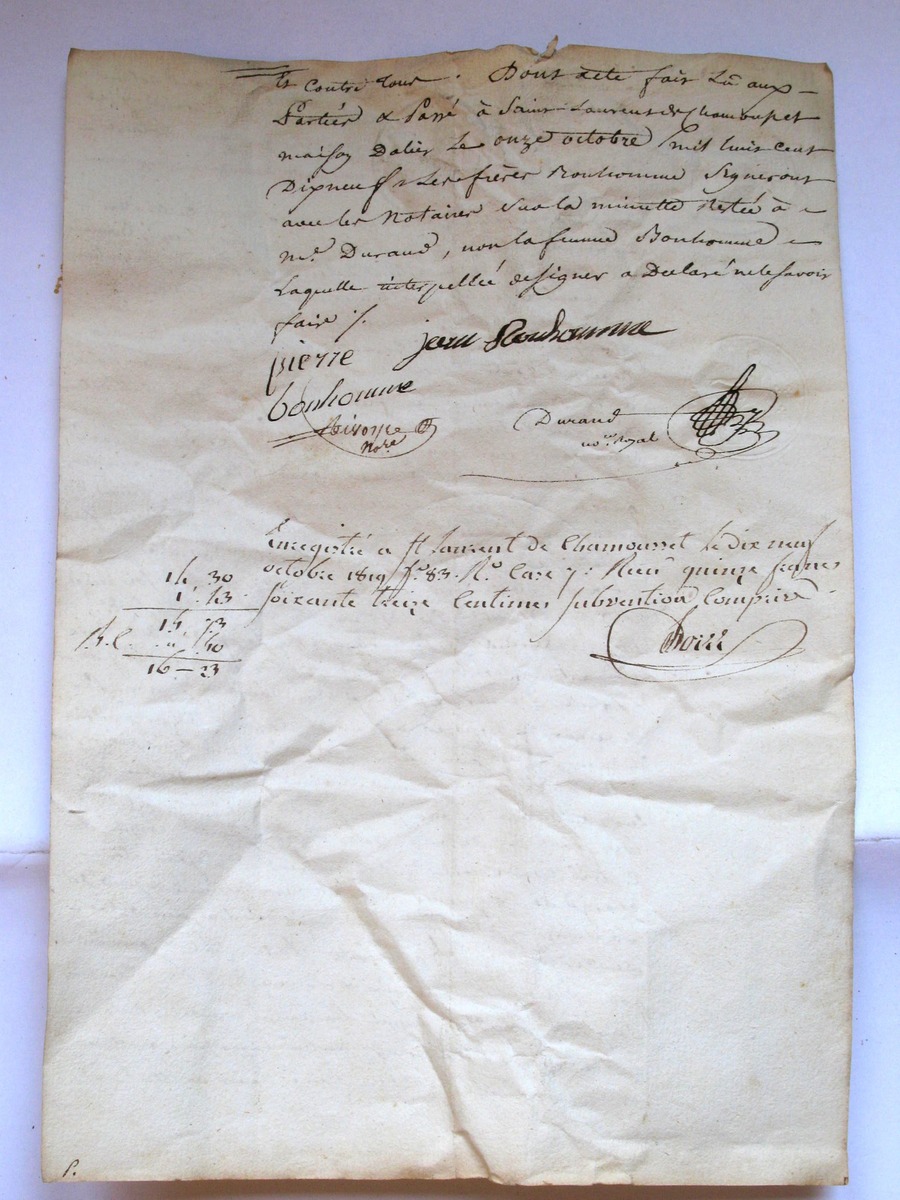 Et Contre Tous . Dont acte fait Lû aux
Parties & Passé à Saint Laurent de Chamousset
maison Dalin Le onze octobre mil huit Cent
Dixneuf & Les frères Bonhomme Signeront
avec les Notaires Sur la minutte Restée à
me. Durand, non la femme Bonhomme
Laquelle interpellée de Signer a Declaré ne le Savoir
faire /.
pierre jean Bonhomme
bonhomme
Nore
Durand
nore Royal
Enregistré a St laurent de Chamousset le dix neuf
octobre 1819 fo. 83. Ro. Case 7: Reçu quinze francs
Soixante treize Centimes Subvention Comprise
14 30
1. 43
15 73
" 50
16 - 23